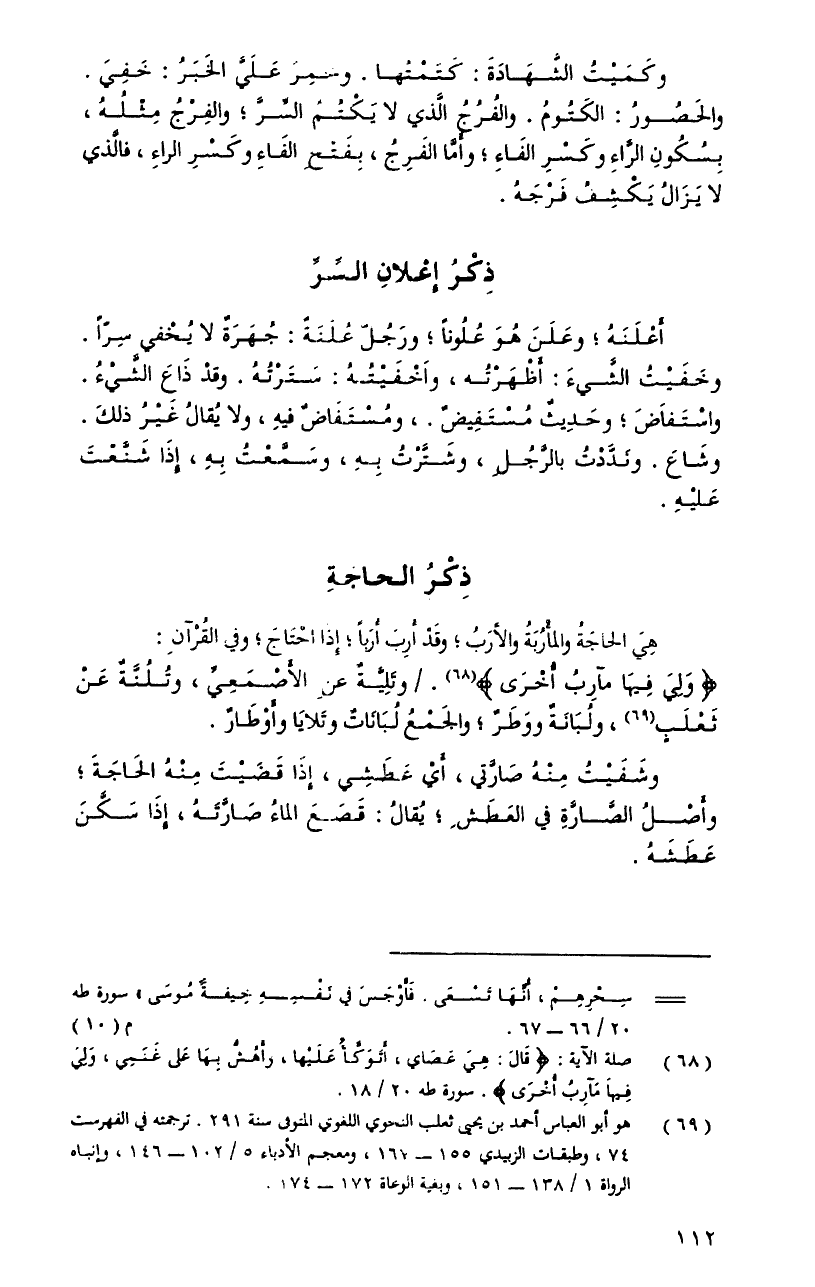 وكَمَيْتُ الشَّهَادَةَ : كَتَمْتُها . وسَمِرَ عَلَيَّ الخَبَرُ : خَفِيَ .
والحَصُورُ : الكَتُومُ . والفُرُجُ الَّذي لا يَكْتُمُ السِّرَّ ؛ والفِرْجُ مِثْلُهُ ،
بِسُكُونِ الرَّاءِ وكَسْرِ الفَاءِ ؛ وأَمَّا الفَرِجُ ، بِفَتْحِ الفَاءِ وكَسْرِ الراءِ ، فالَّذي
لا يَزَالُ يَكْشِفُ فَرْجَهُ .
ذِكْرُ إِعْلانِ السِّرِّ
أَعْلَنَهُ ؛ وعَلَنَ هُوَ عُلُوناً ؛ ورَجُلٌ عُلَنَةٌ : جُهَرَةٌ لا يُخْفي سِرّاً .
وخَفَيْتُ الشَّيءَ : أَظْهَرْتُه ، وأَخْفَيْتُهُ : سَتَرْتُهُ . وقدْ ذَاعَ الشَّيْءُ .
واسْتَفَاضَ ؛ وحَدِيثٌ مُسْتَفِيضٌ . ، ومُسْتَفَاضٌ فيهِ ، ولا يُقالُ غَيْرُ ذلكَ .
وشَاعَ . ونَدَّدْتُ بالرَّجُلِ ، وشَتَّرْتُ بِهِ ، وسَمَّعْتُ بِهِ ، إِذَا شَنَّعْتَ
عَليْهِ .
ذِكْرُ الحاجَةِ
هِيَ الحاجَةُ والمأْرُبَةُ والأرَبُ ؛ وقَدْ أَرِبَ أَرَباً ؛ إِذا احْتَاجَ ؛ وفي القُرْآنِ :
﴿ وَلِيَ فِيهَا مآرِبُ أُخْرَى ﴾(٦٨) . / وتَلِيَّةٌ عنِ الأَصْمَعِيِّ ، وتُلُنَّةٌ عَنْ
ثَعْلَبٍ(٦٩) ، ولُبَانَةٌ ووَطَرٌ ؛ والجَمْعُ لُبَانَاتٌ وتَلايَا وأَوْطَارٌ .
وشَفَيْتُ مِنْهُ صَارَّتي ، أَيْ عَطَشِي ، إِذَا قَضَيْتَ مِنْهُ الحَاجَةَ ؛
وأَصْلُ الصَّارَّةِ في العَطَشِ ؛ يُقالُ : قَصَعَ الماءُ صَارَّتَهُ ، إِذَا سَكَّنَ
عَطَشَهُ .
= سِحْرِهِمْ ، أَنَّهَا تَسْعَى . فَأَوْجَسَ في نَفْسِهِ خِيفَةً مُوسَى » سورة طه
٢٠ / ٦٦ – ٦٧ . م ( ١٠ )
( ٦٨ ) صلة الآية : ﴿ قَالَ : هِيَ عَصَايَ ، أَتَوَكَّأُ عَلَيْها ، وأَهُشُّ بِهَا عَلى غَنَمِي ، وَلِيَ
فِيهَا مَآرِبُ أُخْرَى ﴾ . سورة طه ٢٠ / ١٨ .
( ٦٩ ) هو أبو العباس أحمد بن يحيى ثعلب النحوي اللغوي المتوفى سنة ٢٩١ . ترجمته في الفهرست
٧٤ ، وطبقات الزبيدي ١٥٥ – ١٦٧ ، ومعجم الأدباء ٥ / ١٠٢ – ١٤٦ ، وإنباه
الرواة ١ / ١٣٨ – ١٥١ ، وبغية الوعاة ١٧٢ – ١٧٤ .
١١٢